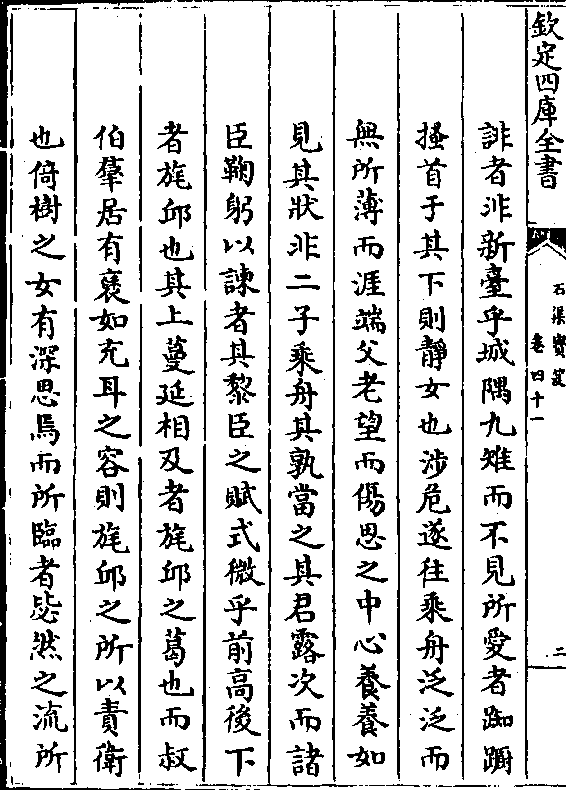 欽定四庫全書
石渠寶笈
卷四十一
二
誹者非新臺乎城隅九雉而不見所愛者踟躕
搔首于其下則靜女也涉危遂往乘舟泛泛而
無所薄而涯端父老望而傷思之中心養養如
見其狀非二子乘舟其孰當之其君露次而諸
臣鞠躬以諫者其黎臣之賦式微乎前高後下
者旄邱也其上蔓延相及者旄邱之葛也而叔
伯羣居有褎如充耳之容則旄邱之所以責衛
也倚樹之女有深思焉而所臨者毖然之流所